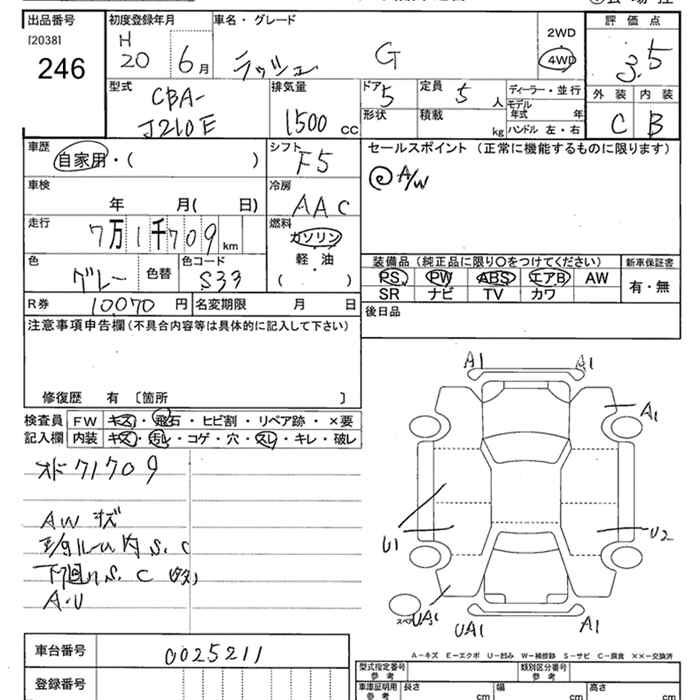 出品番号
[2038]
246
初度登録年月
H
20 6月
車名・グレード
ラッシュ G
2WD
4WD
評価点
3.5
外装 内装
C B
型式
CBA-
J210E
排気量
1500 cc
ドア 5
定員 5 人
形状
積載 kg
ディーラー・並行
モデル年式 年
ハンドル 左・右
車歴
自家用・( )
シフト F5
セールスポイント (正常に機能するものに限ります)
◎A/W
車検
年 月( 日)
冷房
AAC
走行
7万1千709 km
燃料
ガソリン
軽・油
( )
色
グレー 色替
色コード
S33
装備品 (純正品に限り○をつけてください)
PS PW ABS エアB AW
SR ナビ TV カワ
新車保証書
有・無
R券 10070 円
名変期限 月 日
後日品
注意事項申告欄(不具合内容等は具体的に記入して下さい)
修復歴 有 〔箇所 〕
検査員
記入欄
FW キズ・飛石・ヒビ割・リペア跡・×要
内装 キズ・汚レ・コゲ・穴・スレ・キレ・破レ
オド71709
AW キズ
E/gルーム内 S.C
下回りS.C
A・U
A1 A1
A1
U1
U2
UA1
UA1
A1
スペア
A-キズ E-エクボ U-凹み W-補修跡 S-サビ C-腐食 ××-交換済
車台番号
0025211
登録番号
型式指定番号
参考
類別区分番号
参考
車庫証明用
参考
長さ cm
幅 cm
高さ cm